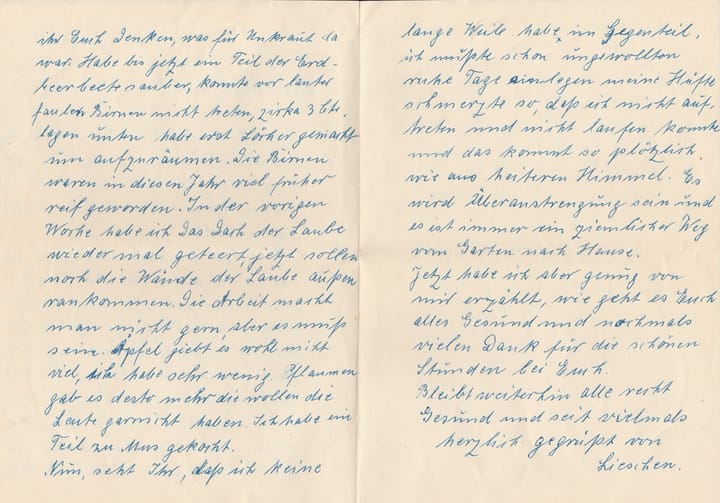 ihr Euch Denken, was für Unkraut da
war. Habe bis jetzt ein Teil der Erd-
beerbeete sauber, konnte vor lauter
faulen Birnen nicht treten, zirka 3 Ctr.
lagen unten, habe erst Löcher gemacht
um aufzuräumen. Die Birnen
waren in diesen Jahr viel früher
reif geworden. In der vorigen
Woche habe ich Das Dach der Laube
wieder mal geteert, jetzt sollen
noch die Wände der Laube außen
rankommen. Die Arbeit macht
man nicht gern, aber es muß
sein. Äpfel giebt es wohl nicht
viel, ich habe sehr wenig. Pflaumen
gab es desto mehr die wollen die
Leute garnicht haben. Ich habe ein
Teil zu Mus gekocht.
Nun, seht Ihr, daß ich keine
lange Weile habe, im Gegenteil,
ich mußte schon ungewollten
ruhe Tage einlegen meine Hüfte
schmerzte so, daß ich nicht auf-
treten und nicht laufen konnte
und das kommt so plötzlich
wie aus heiteren Himmel. Es
wird Überanstrengung sein und
es ist immer ein ziemlicher Weg
vom Garten nach Hause.
Jetzt habe ich aber genug von
mir erzählt, wie geht es Euch
alles Gesund und nochmals
vielen Dank für die schönen
Stunden bei Euch.
Bleibt weiterhin alle recht
Gesund und seit vielmals
herzlich gegrüßt von
Lieschen.